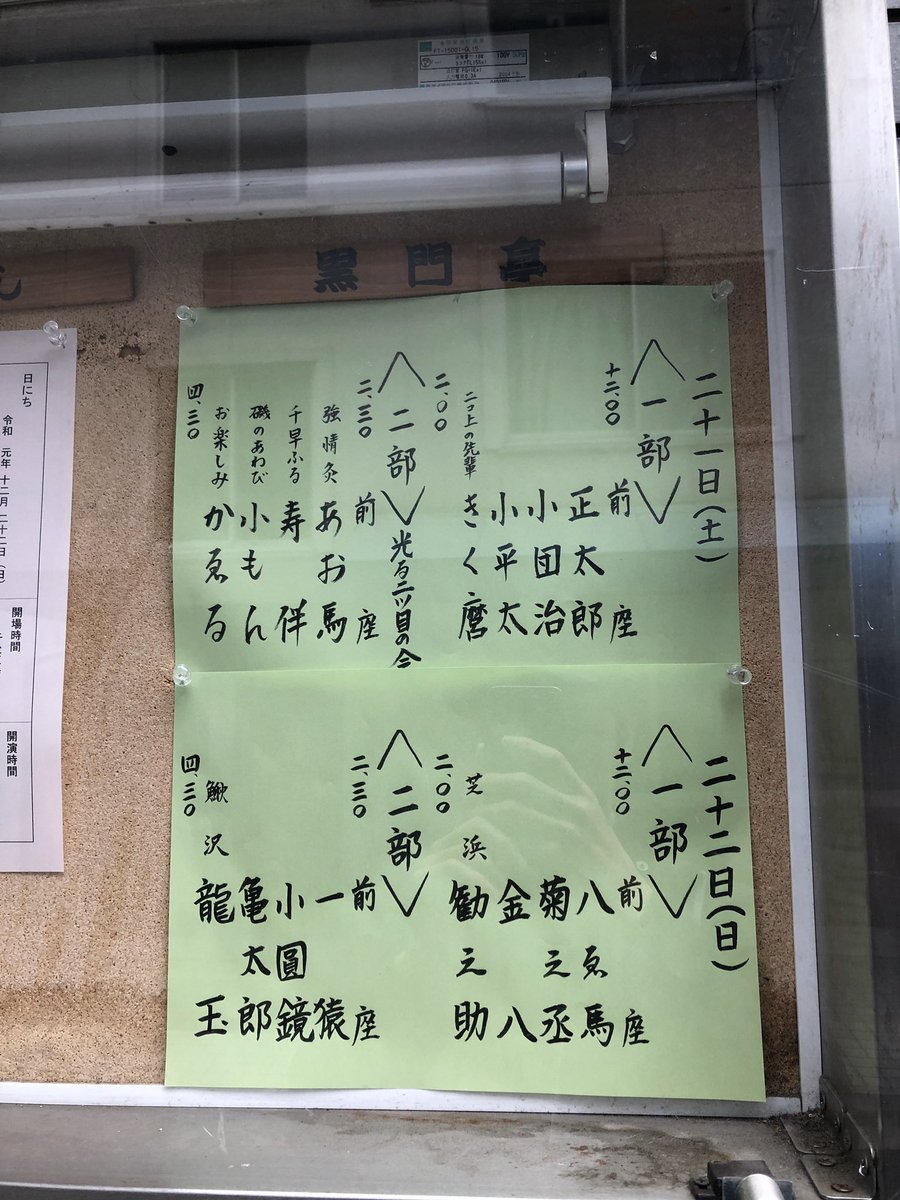 黒門亭
二十一日(土)
〈一部〉
十二、〇〇
前座
正太郎
小団治
小平太
二つ上の先輩 きく麿
二、〇〇
〈二部〉光る二ツ目の会
二、三〇
前座
強情灸 あお馬
千早ふる 寿伴
磯のあわび 小もん
お楽しみ かゑる
四、三〇
二十二日(日)
〈一部〉
十二、〇〇
前座
八ゑ馬
菊之丞
金八
芝浜 勧之助
二、〇〇
〈二部〉
二、三〇
前座
一猿
小圓鏡
亀太郎
鰍沢 龍玉
四、三〇
日にち
令和 元年 十二月 二十二日 (日)
開場時間
開演時間